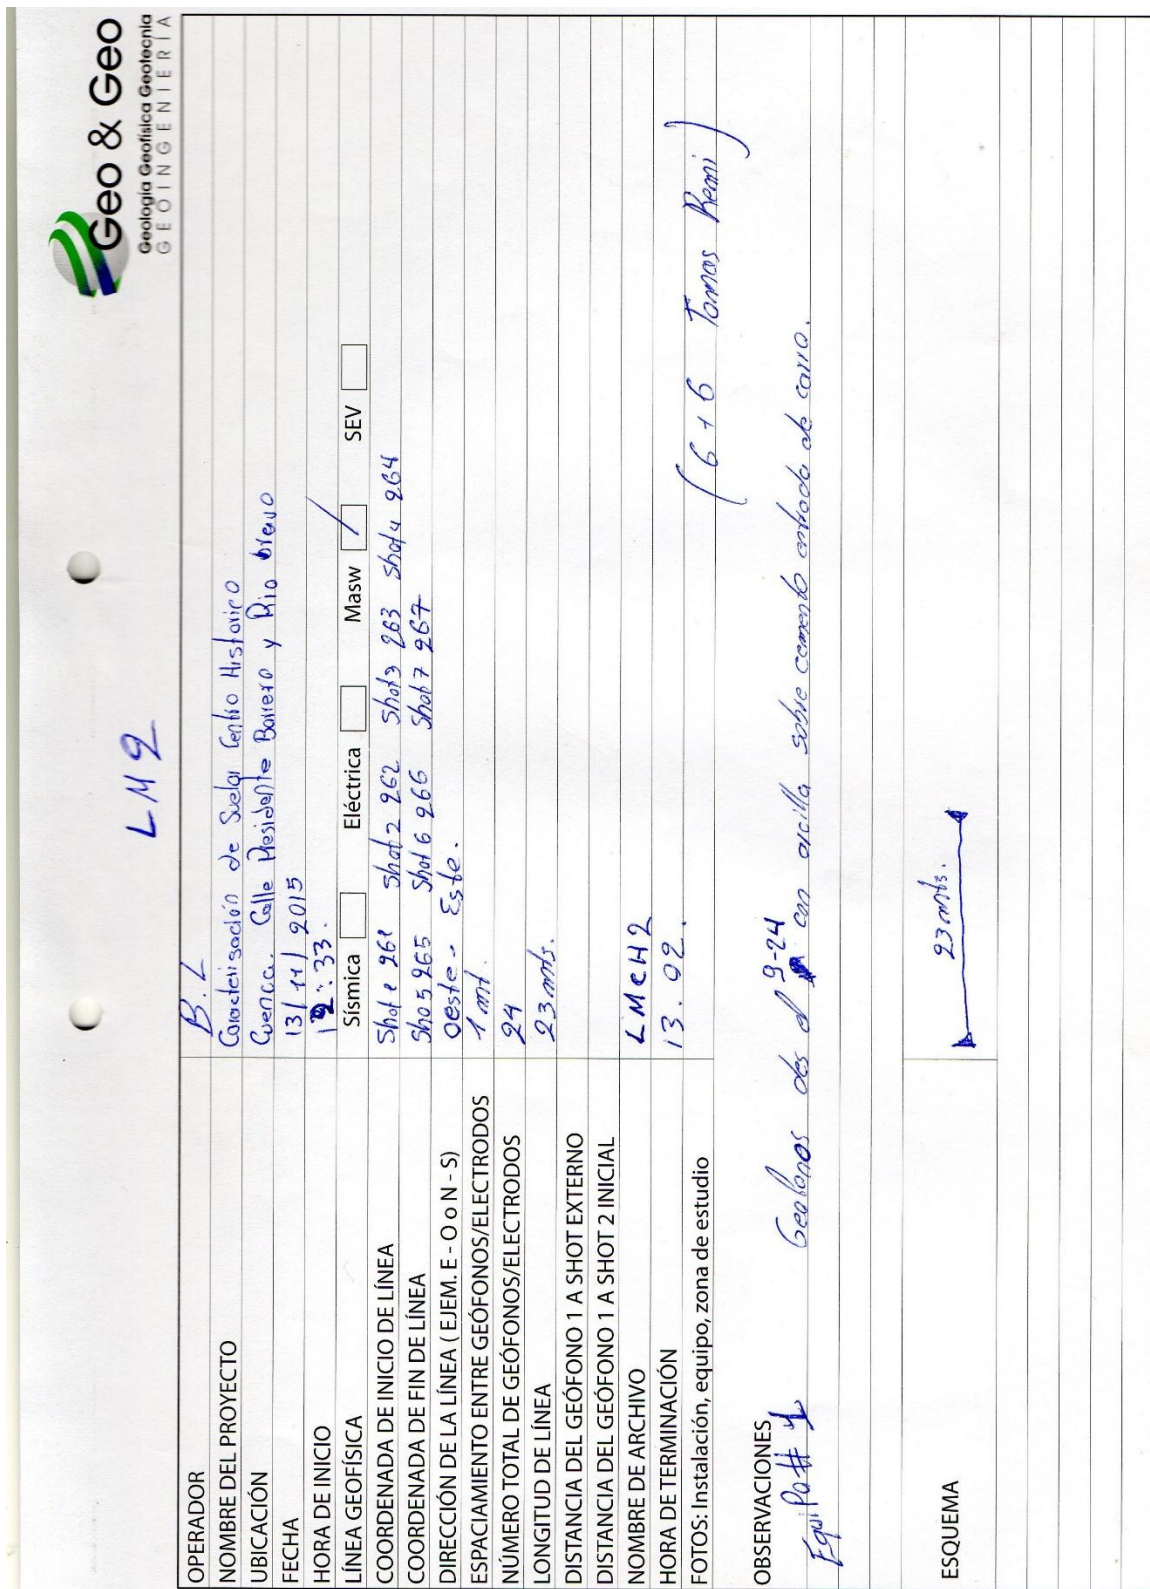 LM2
Geo & Geo
Geología Geofísica Geotecnia
GEOINGENIERÍA
OPERADOR B.L
NOMBRE DEL PROYECTO Caracterisación de Suelos Centro Historico
UBICACIÓN Cuenca. Calle Presidente Borrero y Rio bravo
FECHA 13/11/2015
HORA DE INICIO 12:33.
LÍNEA GEOFÍSICA Sísmica Eléctrica Masw / SEV
COORDENADA DE INICIO DE LÍNEA Shot 1 261 Shot 2 262 Shot 3 263 Shot 4 264
COORDENADA DE FIN DE LÍNEA Sho 5 265 Shot 6 266 Shot 7 267
DIRECCIÓN DE LA LÍNEA ( EJEM. E - O o N - S) Oeste - Este.
ESPACIAMIENTO ENTRE GEÓFONOS/ELECTRODOS 1 mt.
NÚMERO TOTAL DE GEÓFONOS/ELECTRODOS 24
LONGITUD DE LÍNEA 23 mts.
DISTANCIA DEL GEÓFONO 1 A SHOT EXTERNO
DISTANCIA DEL GEÓFONO 1 A SHOT 2 INICIAL
NOMBRE DE ARCHIVO LMCH2
HORA DE TERMINACIÓN 13.02.
FOTOS: Instalación, equipo, zona de estudio (6+6 Tomas Remi)
OBSERVACIONES Geofonos des el 9-24 con arcilla sobre cemento entrada de carro.
Equipo # 1
ESQUEMA 23 mts.